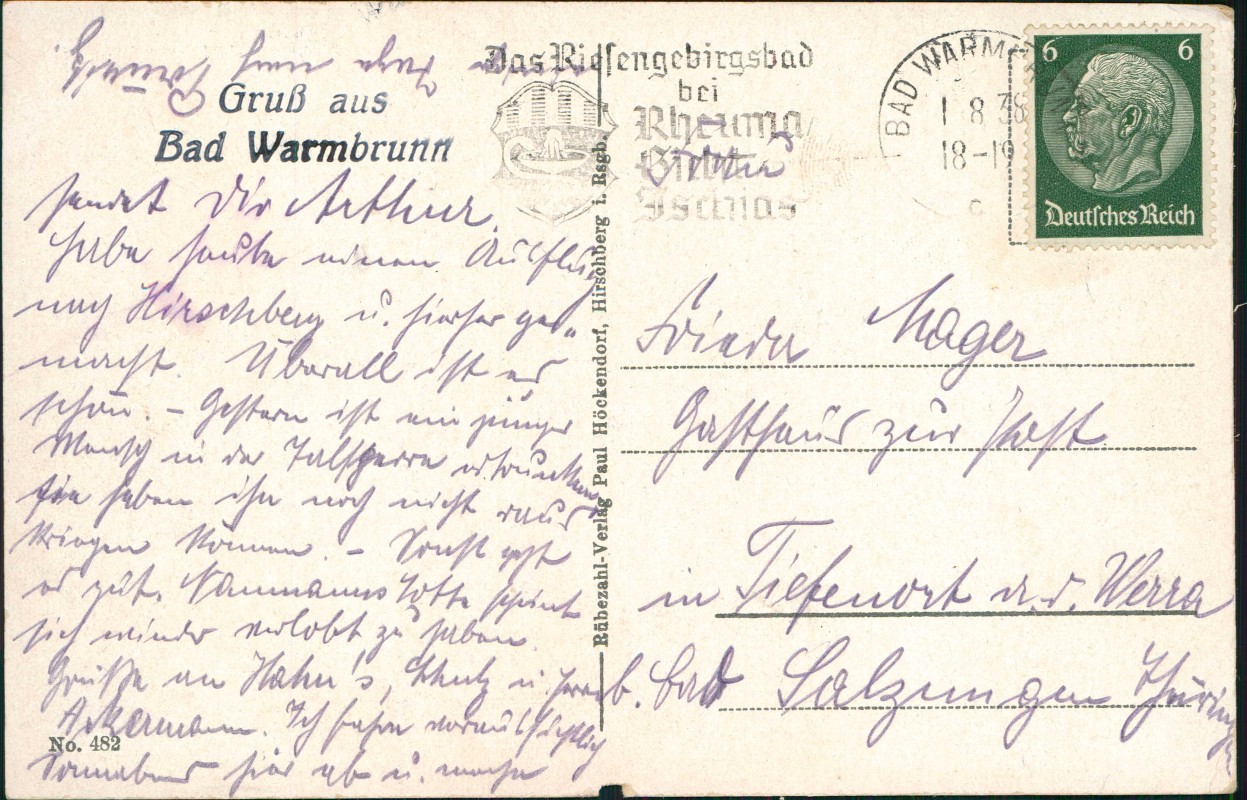 Das Riesengebirgsbad
bei
Rheuma
Gicht
Ischias
BAD WARM
1 8 38
18-19
c
6 6
Deutsches Reich
Gruß aus
Bad Warmbrunn
sendet Dir Arthur.
Habe heute einen Ausflug
nach Hirschberg u. hierher ge-
macht. Überall ist es
schön. - Gestern ist ein junger
Mensch in der Talsperre ertrunken
sie haben ihn noch nicht raus
kriegen können. - Sonst geht
es gut. Naumanns Lotte scheint
sich wieder verlobt zu haben.
Grüße an Hahn's, u. Frau
Ackermann. Ich fahre voraussichtlich
Sonnabend hier ab u. mache
No. 482
Rübezahl-Verlag Paul Höckendorf, Hirschberg i. Rsgb.
Frieda Mager
Gasthaus zur Post
in Tiefenort a. d. Werra
b. Bad Salzungen Thüringen